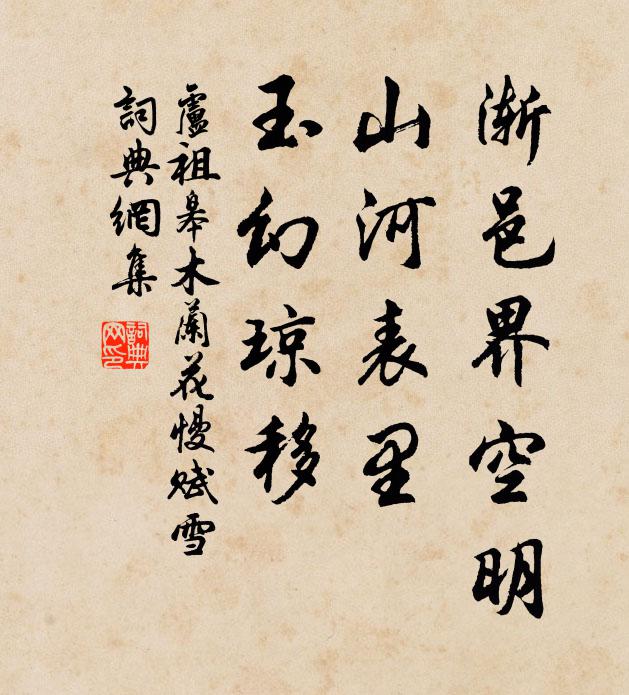 渐邑界空明
山河表里
玉幻琼移
盧祖皋木蘭花慢賦雪
詞典網集
詞典
网印